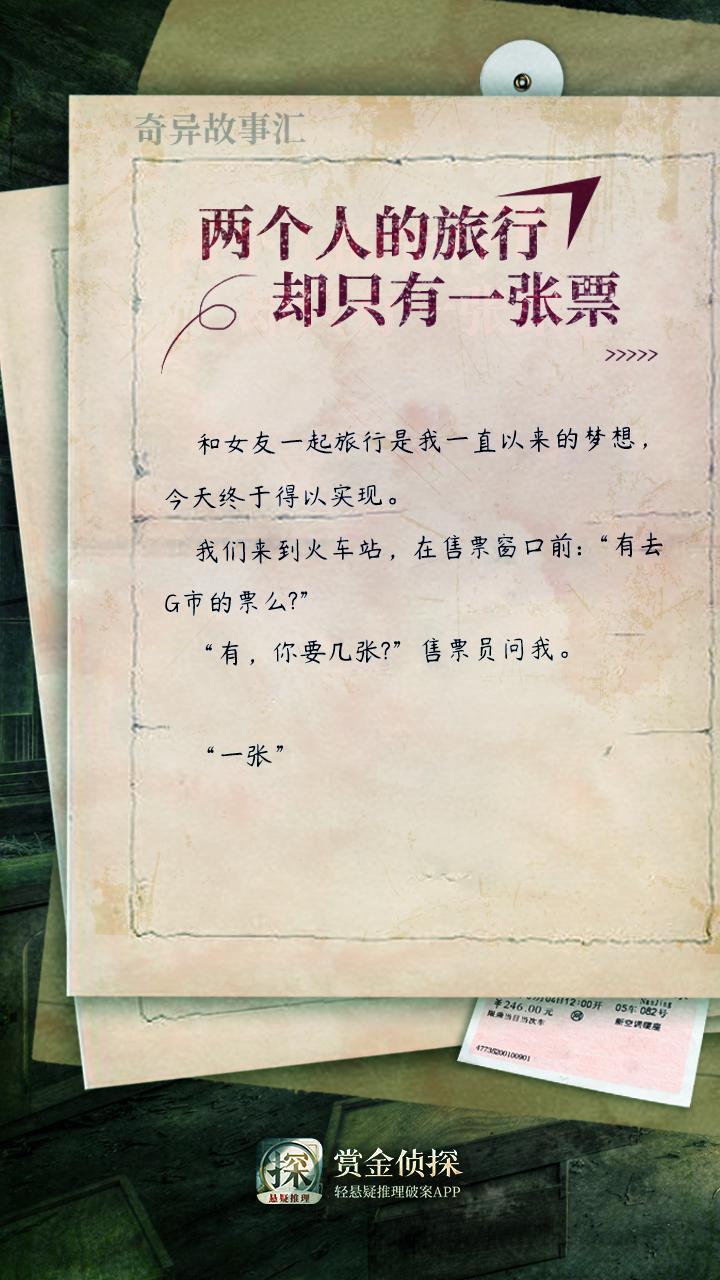 奇异故事汇
两个人的旅行
却只有一张票
>>>>>
和女友一起旅行是我一直以来的梦想，
今天终于得以实现。
我们来到火车站，在售票窗口前：“有去
G市的票么?”
“有，你要几张?”售票员问我。
“一张”
04日12:00开
NanJing
¥246.00元
网
05车 082号
限乘当日当次车
新空调硬座
47735200100901
探
悬疑推理
赏金侦探
轻悬疑推理破案APP